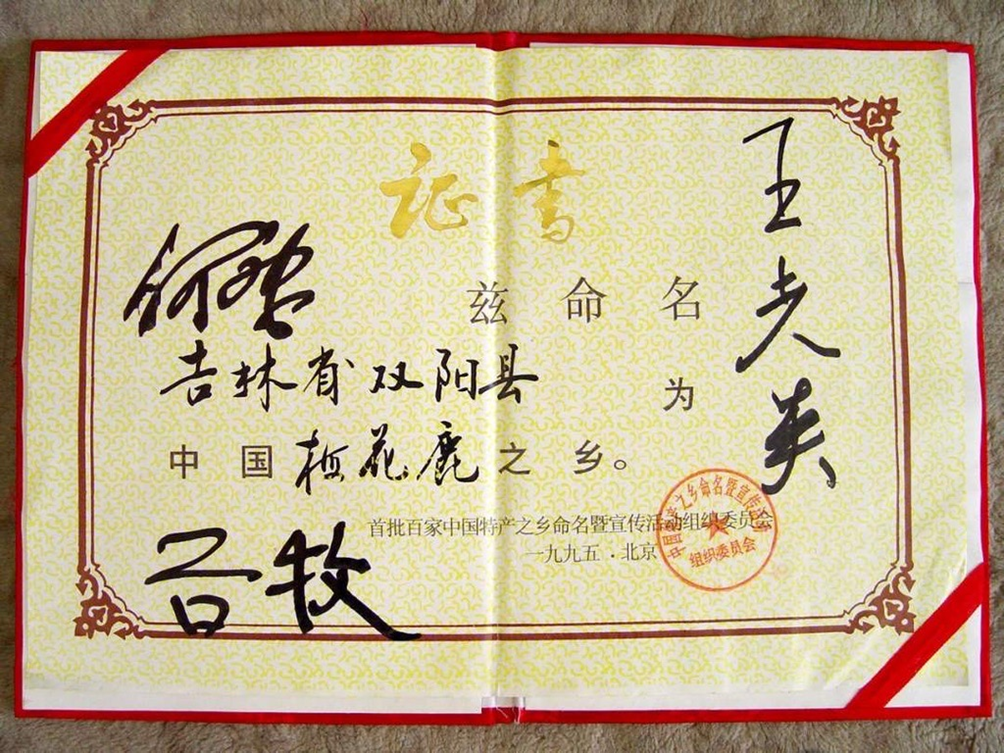 证书
兹命名
吉林省双阳县 为
中国梅花鹿之乡。
首批百家中国特产之乡命名暨宣传活动组织委员会
一九九五·北京
中国特产之乡命名暨宣传活动
组织委员会
何康
吕牧